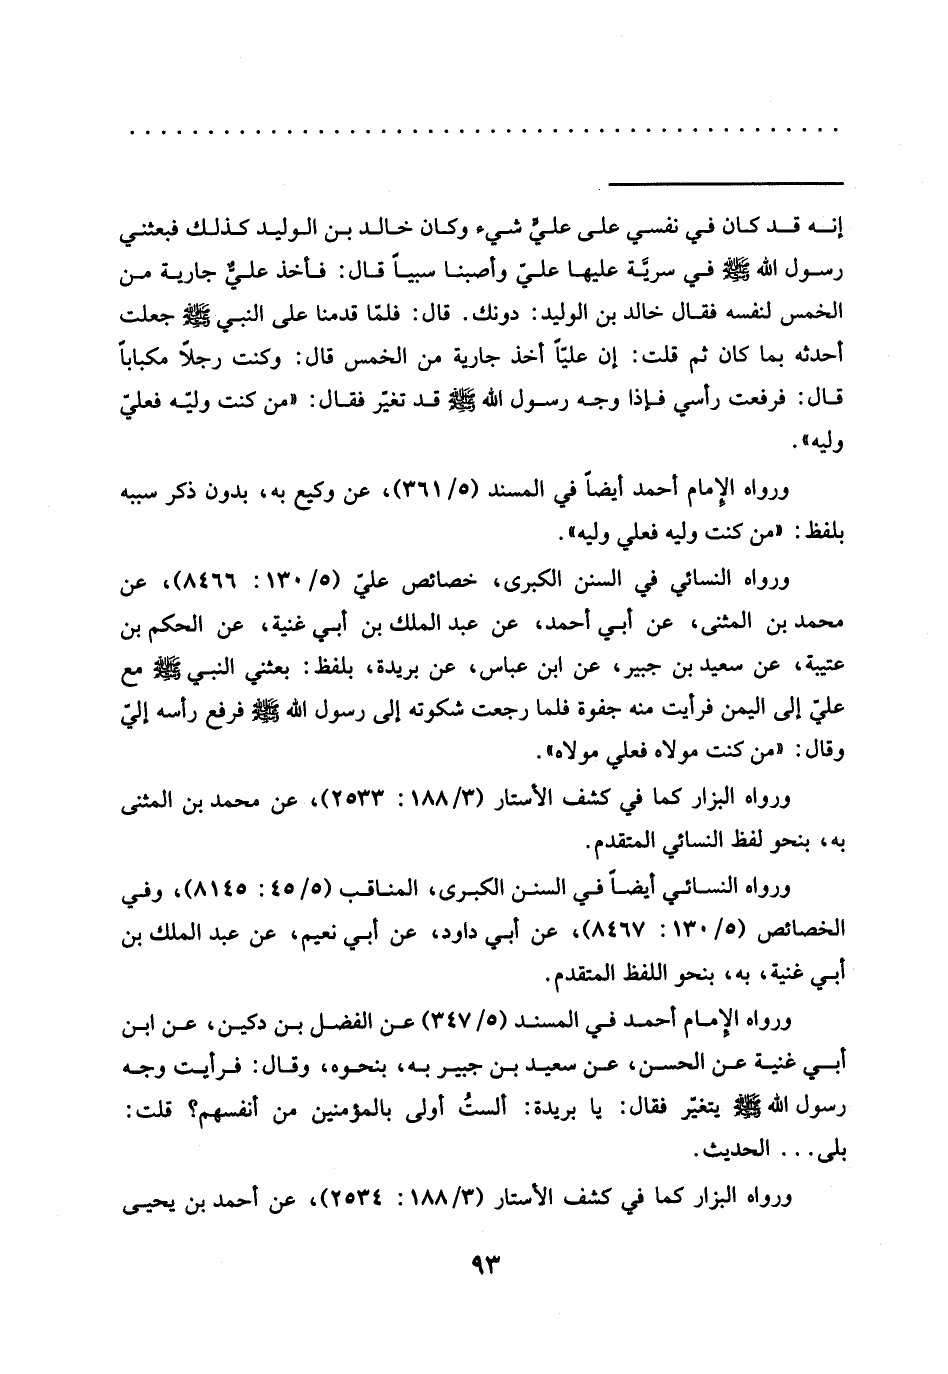 إنه قد كان في نفسي على عليٍّ شيء وكان خالد بن الوليد كذلك فبعثني
رسول الله ﷺ في سريَّة عليها عليّ وأصبنا سبياً قال: فأخذ عليٌّ جارية من
الخمس لنفسه فقال خالد بن الوليد: دونك. قال: فلمّا قدمنا على النبي ﷺ جعلت
أحدثه بما كان ثم قلت: إن عليّاً أخذ جارية من الخمس قال: وكنت رجلاً مكباباً
قال: فرفعت رأسي فإذا وجه رسول الله ﷺ قد تغيّر فقال: «من كنت وليّه فعليّ
وليه».
ورواه الإمام أحمد أيضاً في المسند (٣٦١/٥)، عن وكيع به، بدون ذكر سببه
بلفظ: «من كنت وليه فعلي وليه».
ورواه النسائي في السنن الكبرى، خصائص عليّ (١٣٠/٥: ٨٤٦٦)، عن
محمد بن المثنى، عن أبي أحمد، عن عبد الملك بن أبي غنية، عن الحكم بن
عتيبة، عن سعيد بن جبير، عن ابن عباس، عن بريدة، بلفظ: بعثني النبي ﷺ مع
عليّ إلى اليمن فرأيت منه جفوة فلما رجعت شكوته إلى رسول الله ﷺ فرفع رأسه إليّ
وقال: «من كنت مولاه فعلي مولاه».
ورواه البزار كما في كشف الأستار (١٨٨/٣: ٢٥٣٣)، عن محمد بن المثنى
به، بنحو لفظ النسائي المتقدم.
ورواه النسائي أيضاً في السنن الكبرى، المناقب (٤٥/٥: ٨١٤٥)، وفي
الخصائص (١٣٠/٥: ٨٤٦٧)، عن أبي داود، عن أبي نعيم، عن عبد الملك بن
أبي غنية، به، بنحو اللفظ المتقدم.
ورواه الإمام أحمد في المسند (٣٤٧/٥) عن الفضل بن دكين، عن ابن
أبي غنية عن الحسن، عن سعيد بن جبير به، بنحوه، وقال: فرأيت وجه
رسول الله ﷺ يتغيّر فقال: يا بريدة: ألستُ أولى بالمؤمنين من أنفسهم؟ قلت:
بلى... الحديث.
ورواه البزار كما في كشف الأستار (١٨٨/٣: ٢٥٣٤)، عن أحمد بن يحيى
٩٣